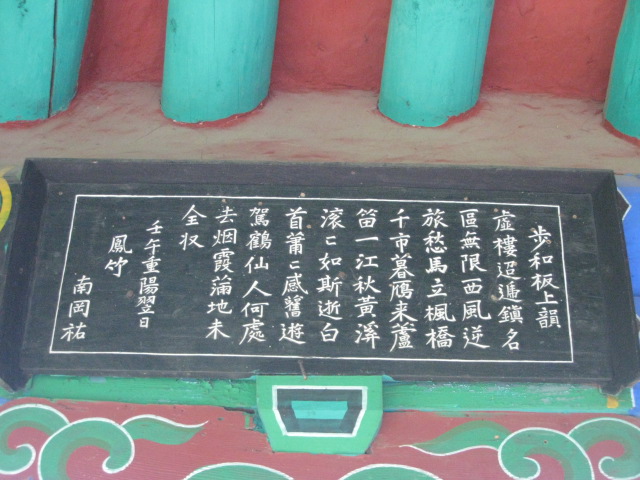 步和板上韻
虛樓迢遞鎭名
區無限西風逆
旅愁馬立楓橋
千市暮鴈来蘆
笛一江秋黃溪
滚〻如斯逝白
首蕭〻感舊遊
駕鶴仙人何處
去烟霞蒲地未
全收
壬午重陽翌日
鳳竹
南岡祐